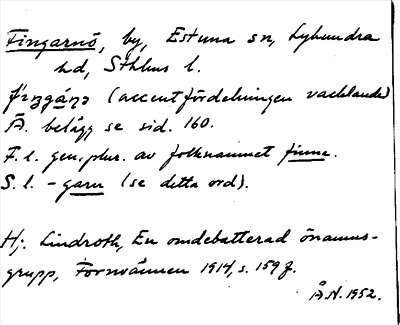 Fingarnö, by, Estuna sn, Lyhundra
hd, Sthlms l.
(accentfördelningen vacklande)
Ä. belägg se sid. 160.
F. l. gen. plur. av folknamnet finne.
S. l. -garn (se detta ord).
Hj. Lindroth, En omdebatterad önamns-
grupp, Fornvännen 1914, s. 159 f.
Å.N. 1952.